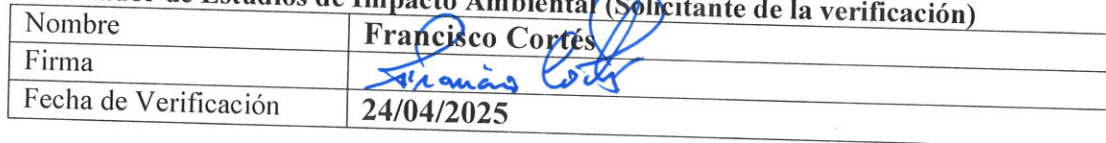 de Estudios de Impacto Ambiental (Solicitante de la verificación)
Nombre Francisco Cortés
Firma Francisco Cortés
Fecha de Verificación 24/04/2025